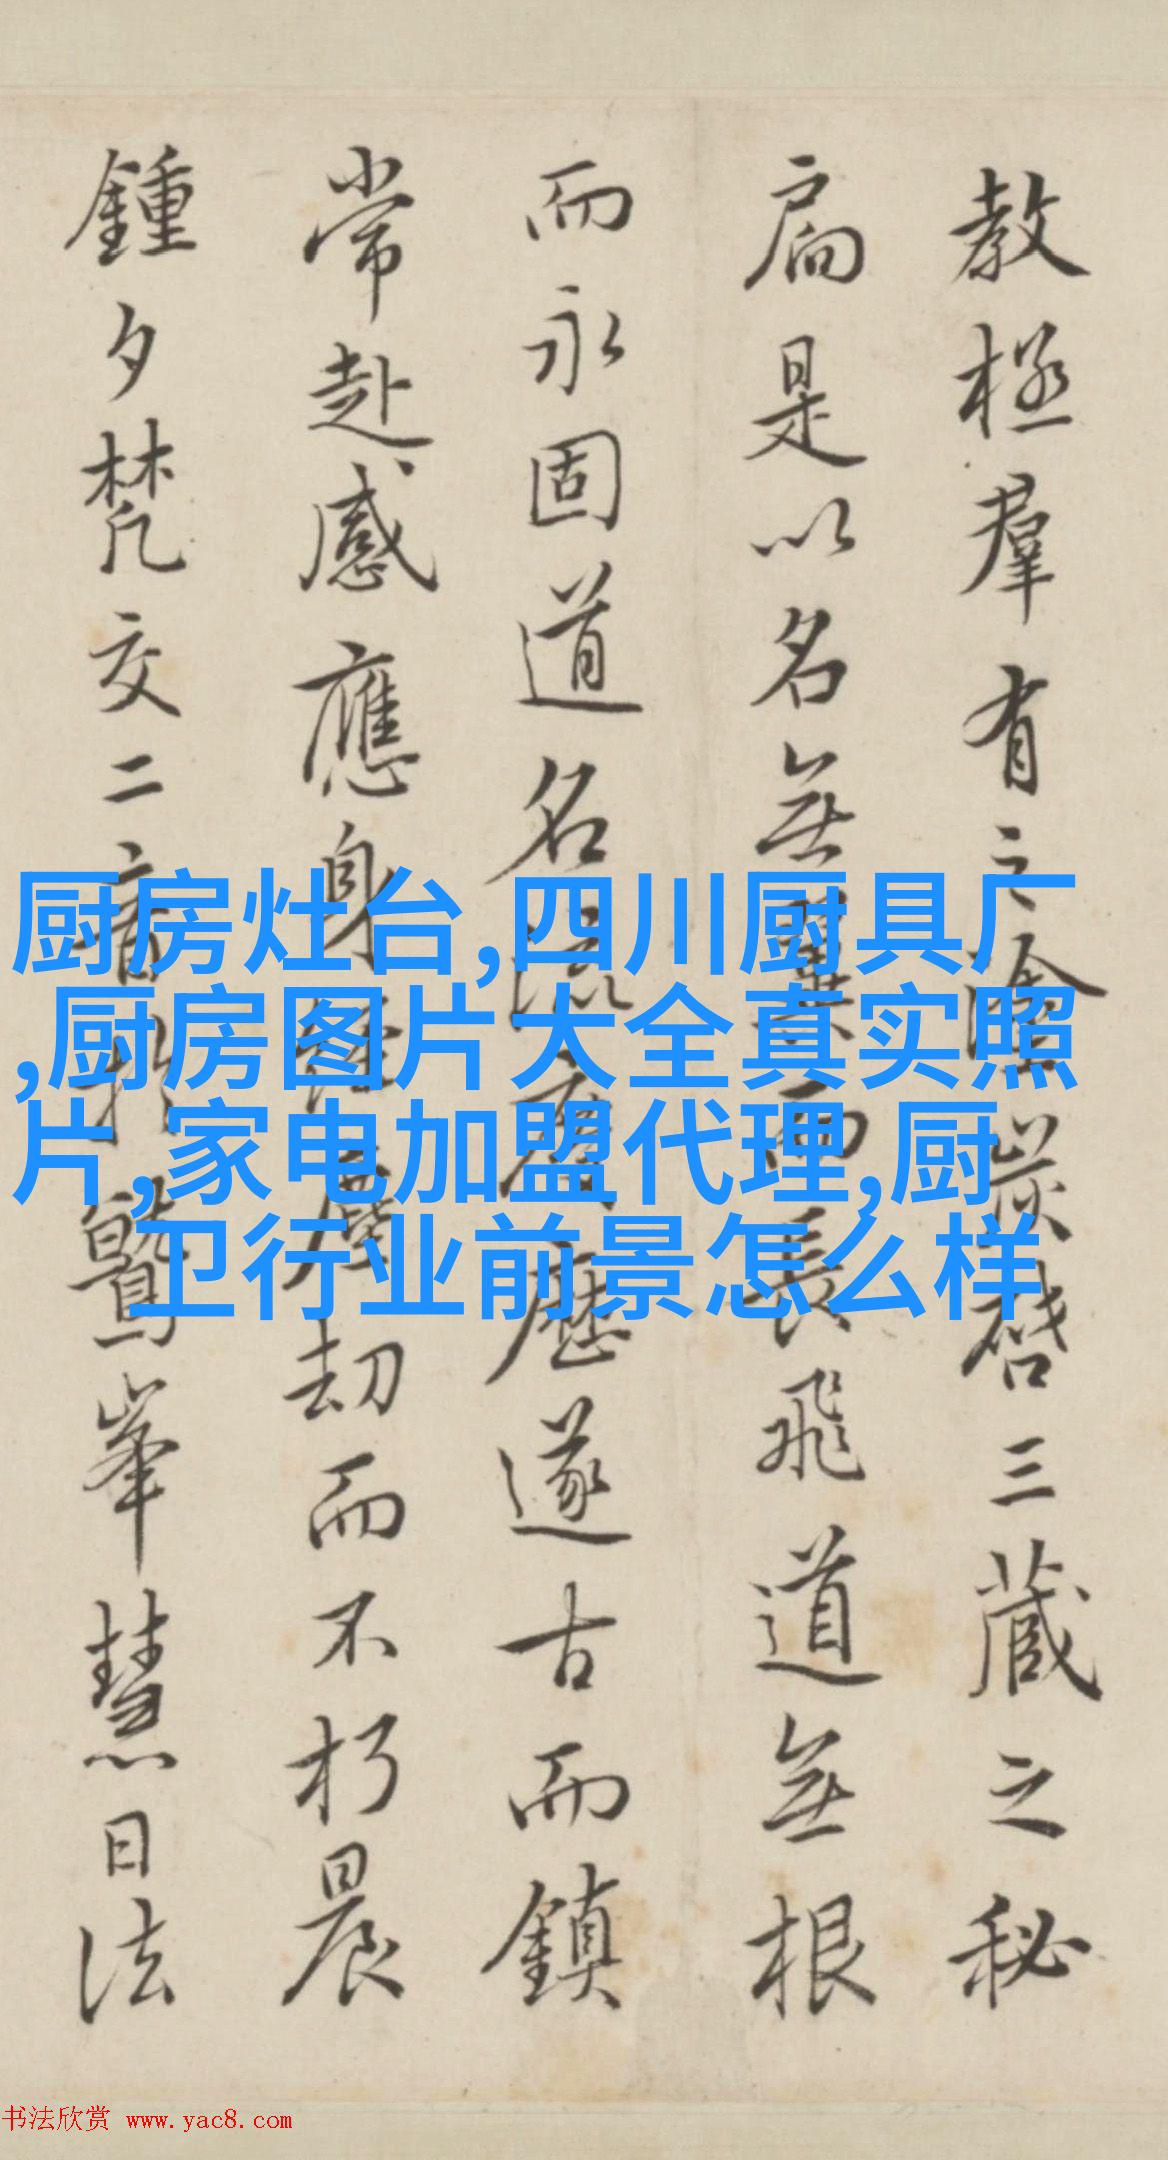 教極羣有之
三藏之秘
扃是以名無
而長飛道無根
而永固道名流
歷遂古而鎮
常赴感應身
塵劫而不朽晨
鍾夕梵交二音
鷲峯慧日法
厨房灶台,四川厨具厂
,厨房图片大全真实照
片,家电加盟代理,厨
卫行业前景怎么样
书法欣赏 www.yac8.com